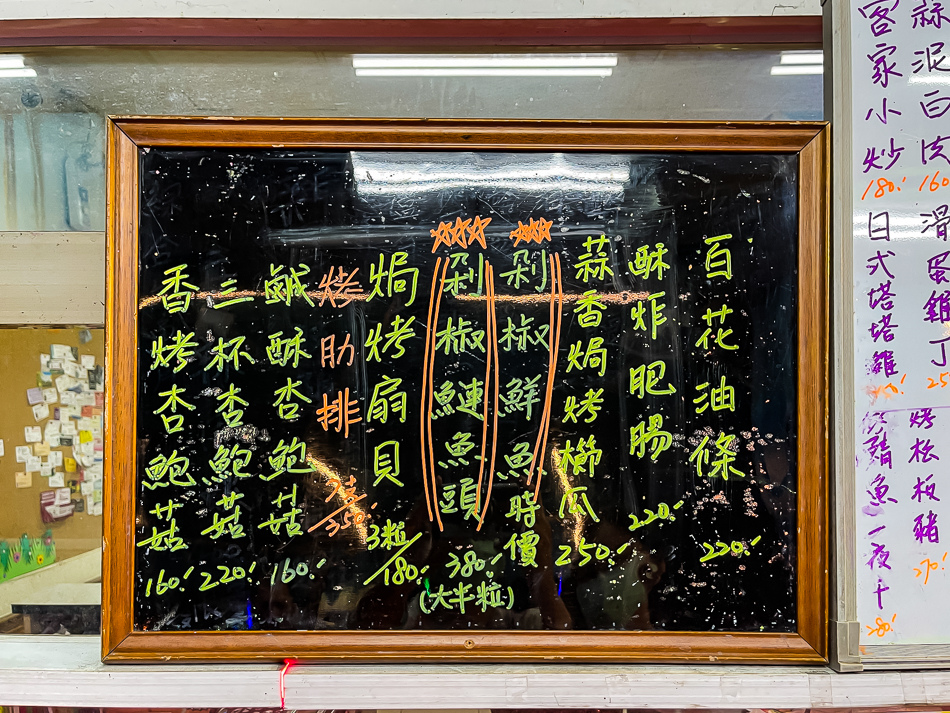 百花油條 220.-
酥炸肥腸 220.-
蒜香焗烤櫛瓜 250.-
剁椒鮮魚時價
剁椒鰱魚頭 380.-
(大半粒)
焗烤扇貝 3粒/180.-
烤肋排 /350.-
鹹酥杏鮑菇 160.-
三杯杏鮑菇 220.-
香烤杏鮑菇 160.-
蒜泥白肉 160
滑蛋雞丁
烤松板豬 270.-
客家小炒 180.-
日式塔塔雞
鯖魚一夜干 280.-